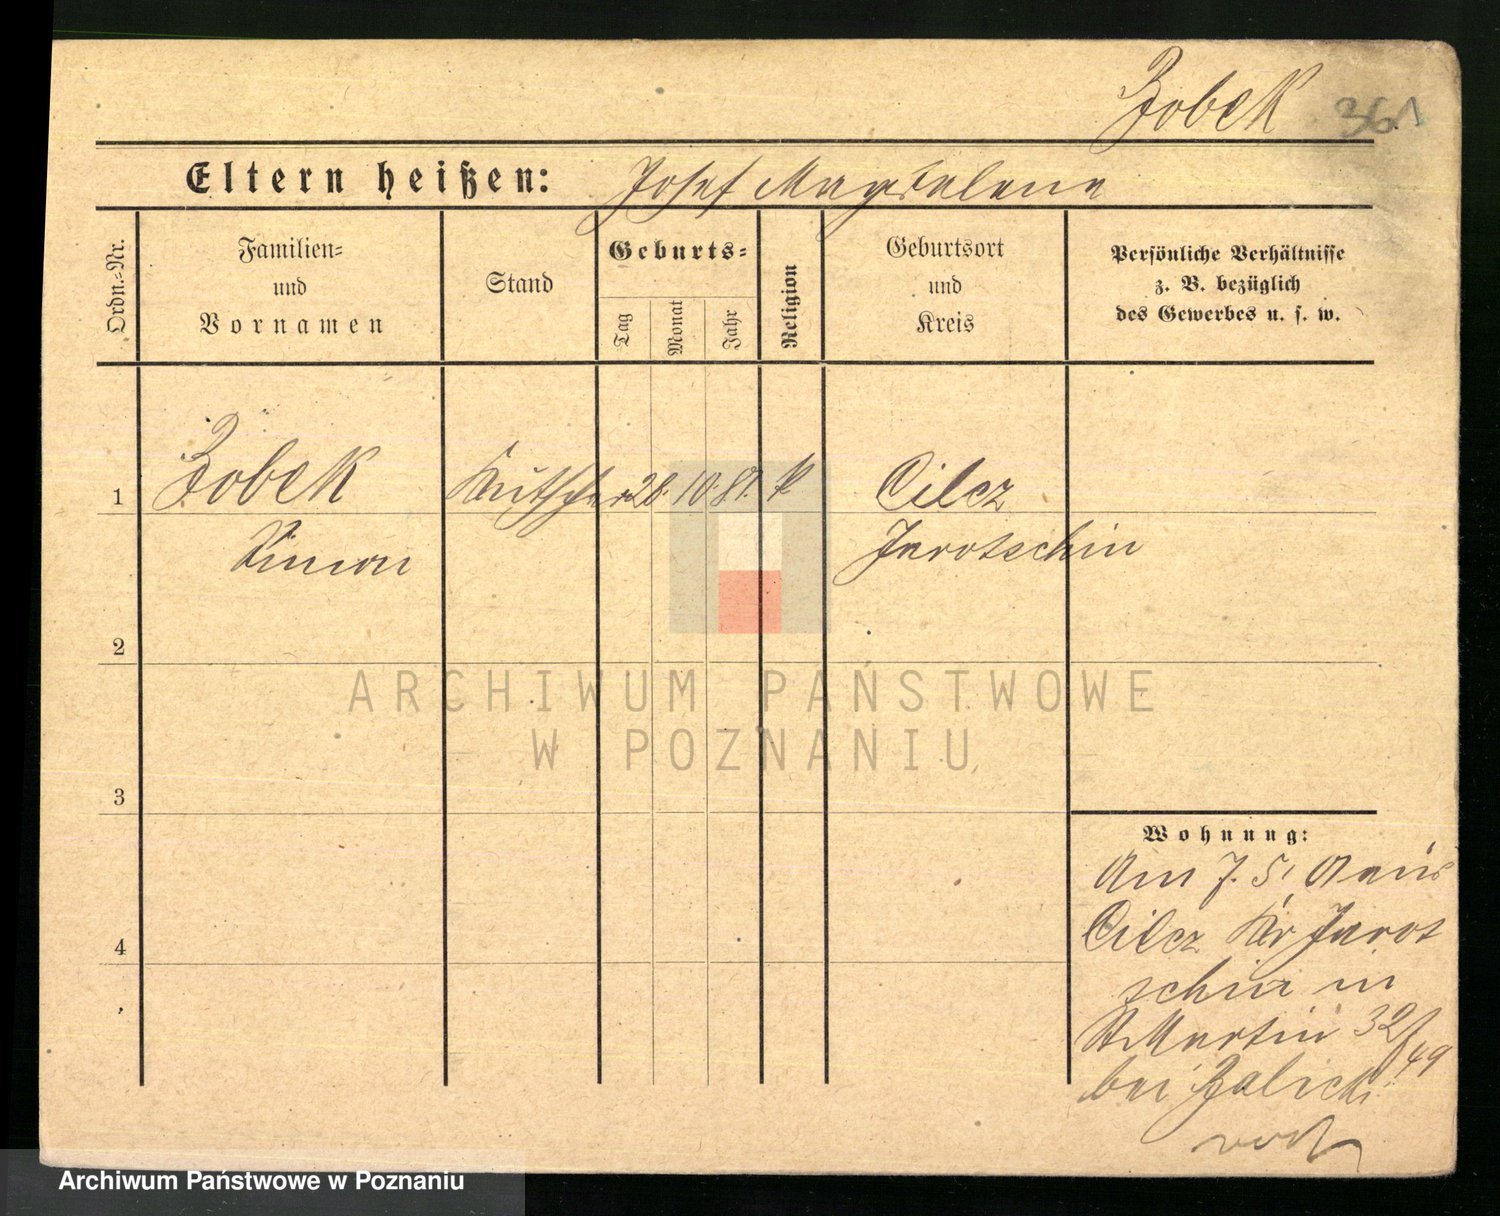 Zobek 361
Eltern heißen: Josef Magdalena
Ordn.=Nr.
Familien=
und
Vornamen
Stand
Geburts=
Tag
Monat
Jahr
Religion
Geburtsort
und
Kreis
Persönliche Verhältnisse
z. B. bezüglich
des Gewerbes u. s. w.
1 Zobek Kutscher 28. 10. 81. k Cilcz
Simon Jarotschin
2
ARCHIWUM PAŃSTWOWE
W POZNANIU
3
Wohnung:
Am 7. 5. aus
Cilcz Kr Jarot
schin in
St Martin 32/49
4
bei Zalicki
Archiwum Państwowe w Poznaniu